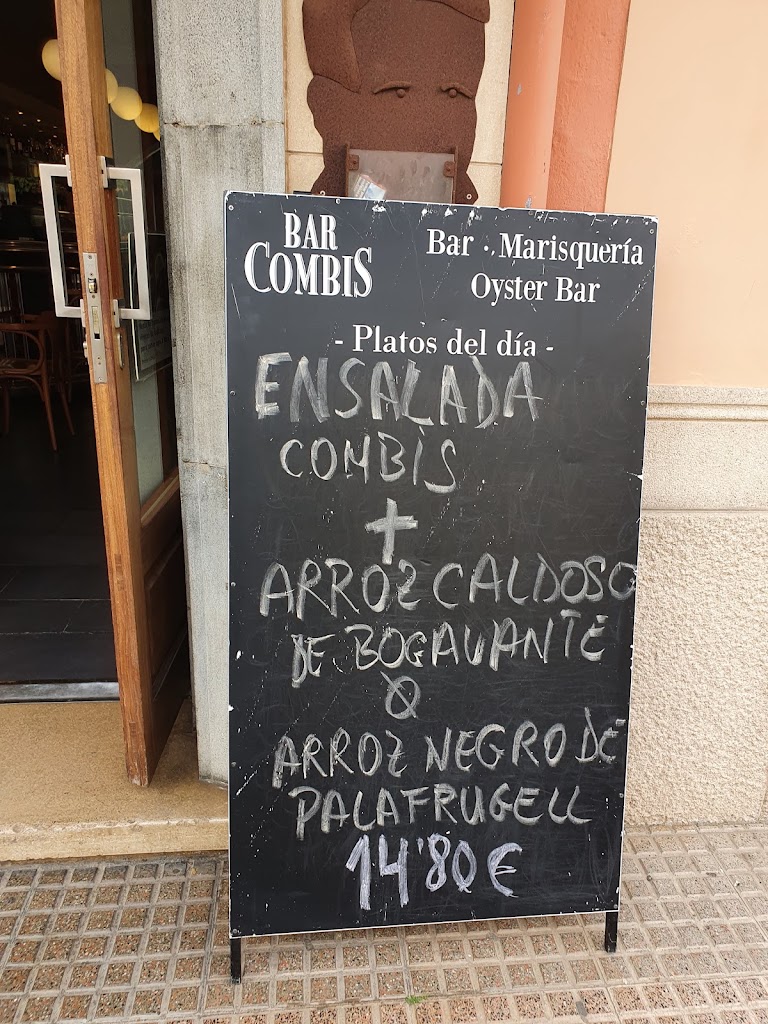 BAR
COMBIS
Bar · Marisquería
Oyster Bar
- Platos del día -
ENSALADA
COMBIS
+
ARROZ CALDOSO
DE BOGAVANTE
O
ARROZ NEGRO DE
PALAFRUGELL
14'80€